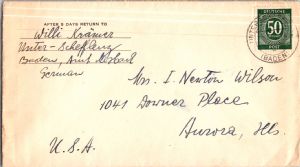 AFTER 5 DAYS RETURN TO
Willi Krämer
Unter-Scheflenz
Baden, Amt Mosbach
Germany
DEUTSCHE
50
POST
(BADEN)
Mrs. I Newton Wilson
1041 Downer Place
Aurora, Ills.
U.S.A.